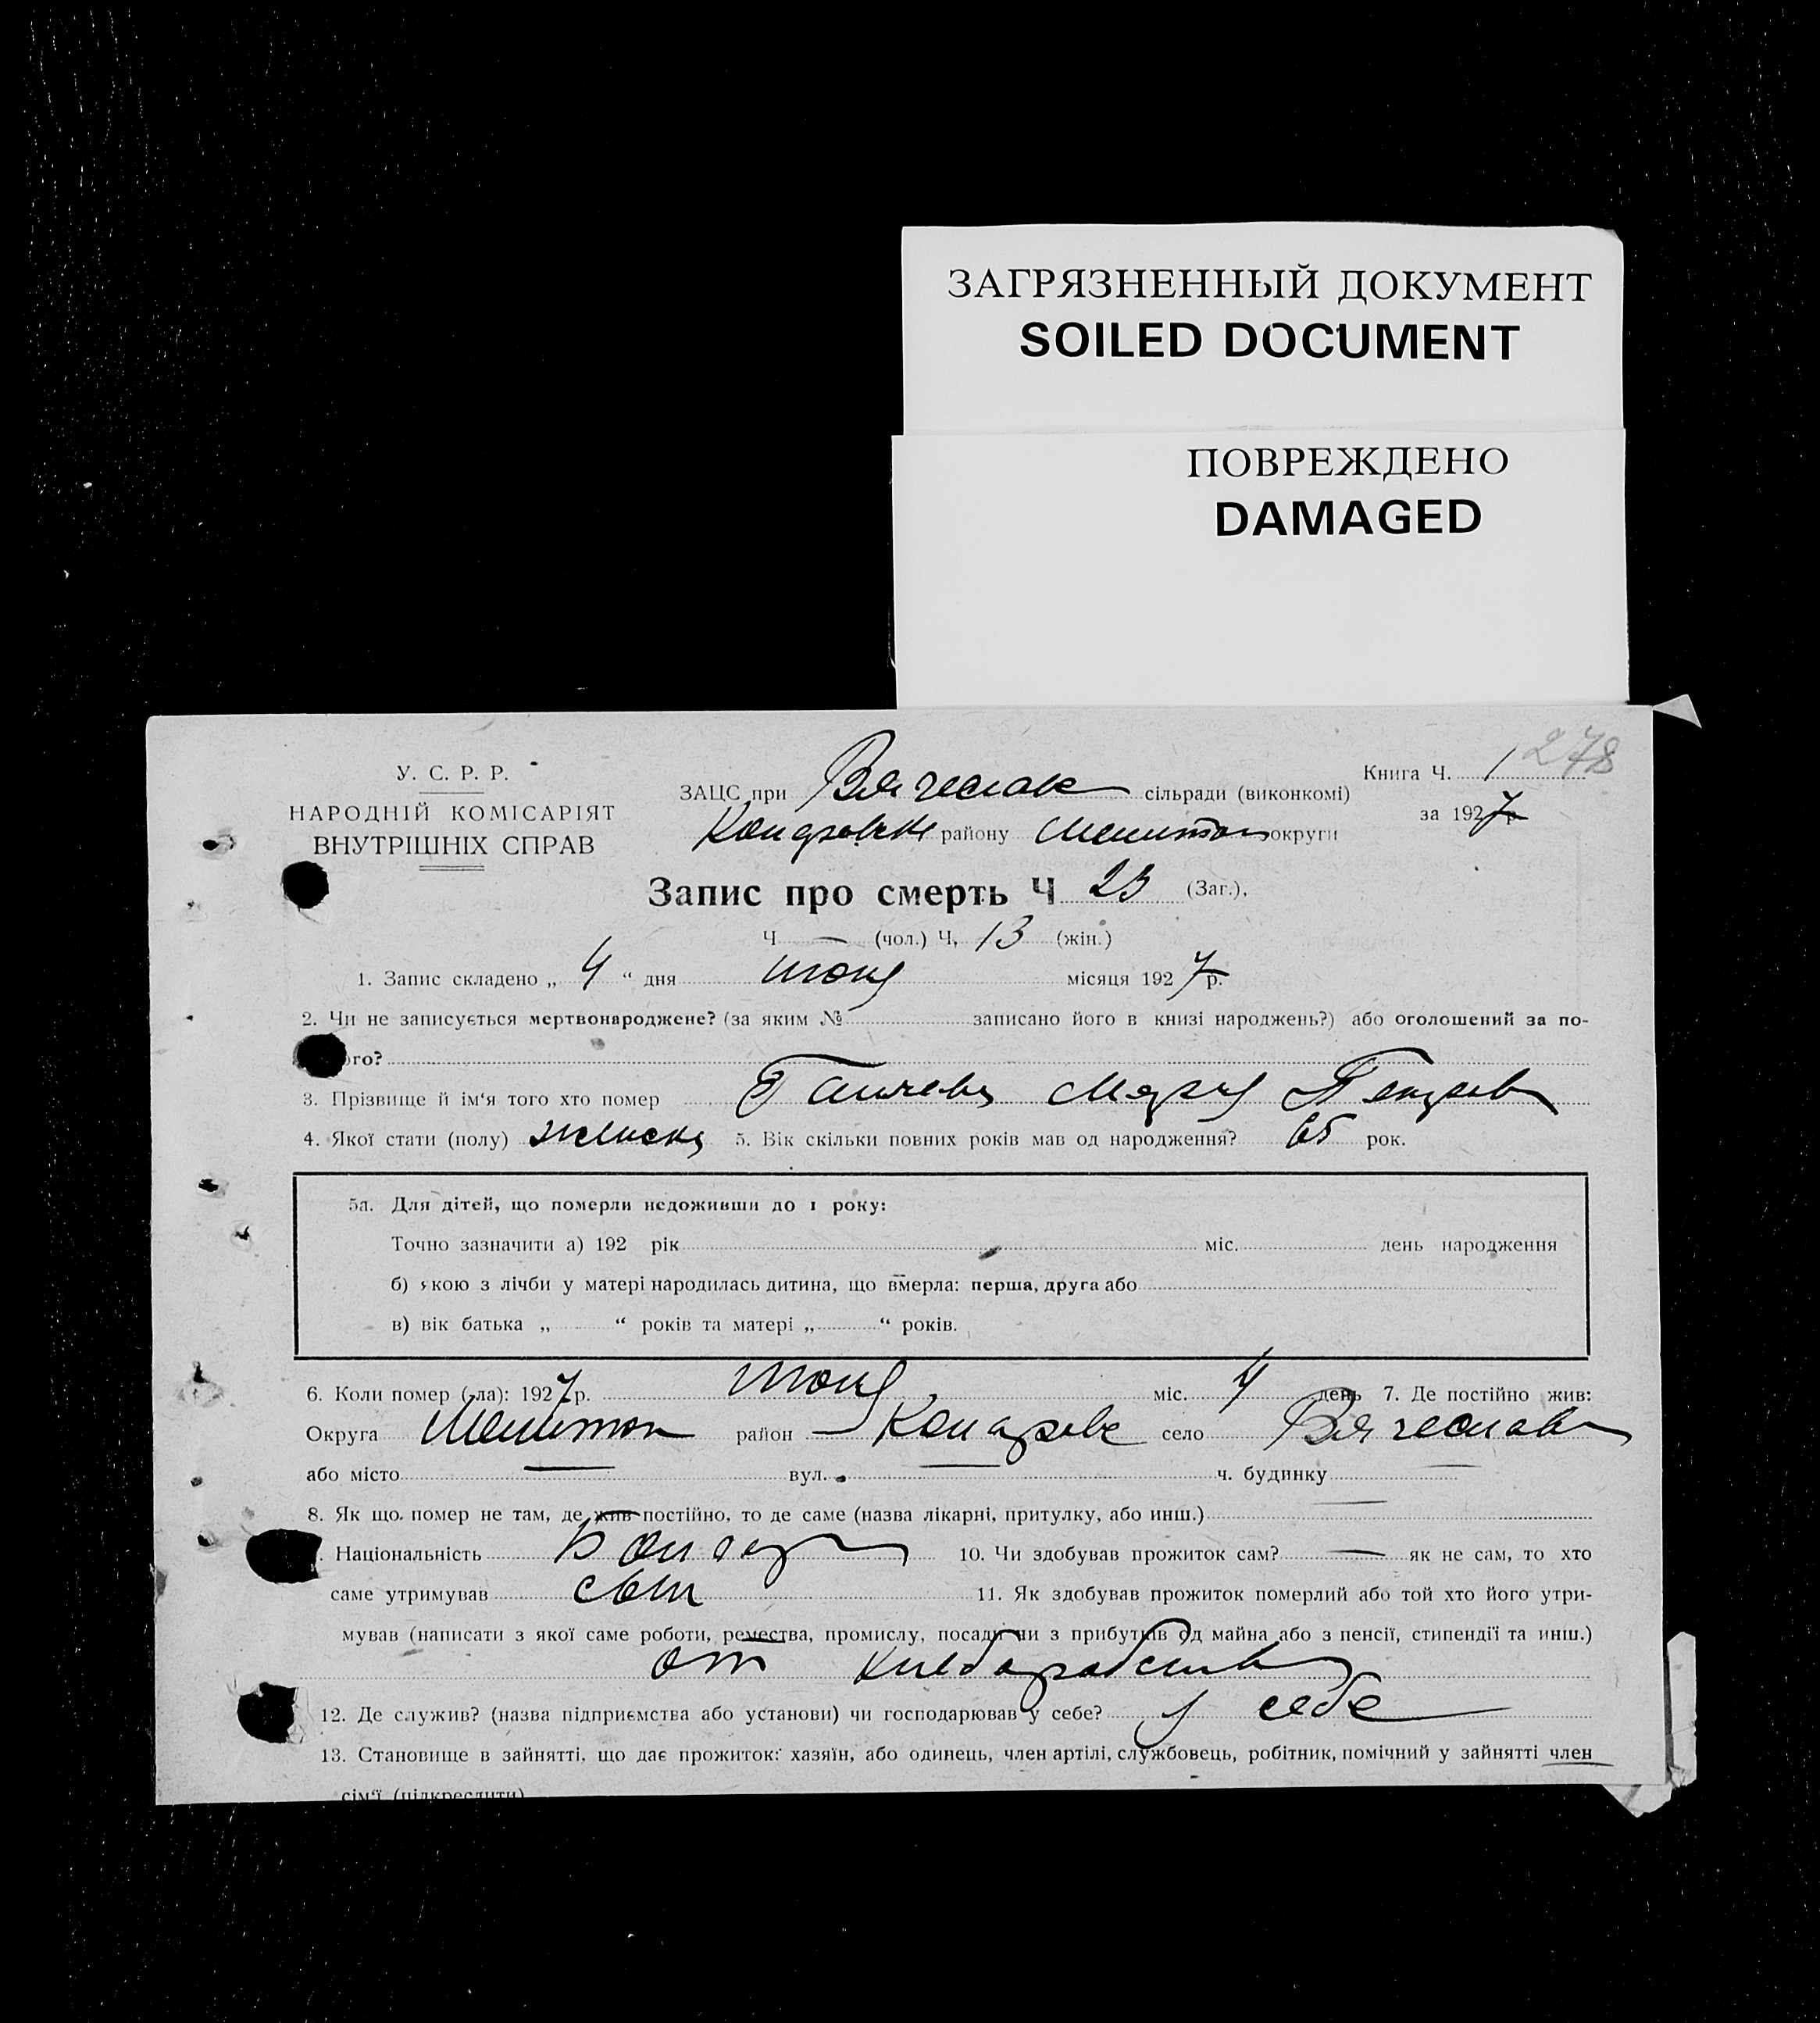 ЗАГРЯЗНЕННЫЙ ДОКУМЕНТ
SOILED DOCUMENT
ПОВРЕЖДЕНО
DAMAGED
278
У. С. Р. Р.
НАРОДНІЙ КОМІСАРІЯТ
ВНУТРІШНІХ СПРАВ
ЗАЦС при Вячеслав сільради (виконкомі)
району Мелитоп округи
Книга Ч. 1
за 1927 р.
Запис про смерть Ч 23 (Заг.),
Ч — (чол.) Ч, 13 (жін.)
1. Запис складено „ 4 “ дня июня місяця 1927 р.
2. Чи не записується мертвонароджене? (за яким № записано його в книзі народжень?) або оголошений за по-
ого?
3. Прізвище й ім‘я того хто помер Мария Петров
4. Якої стати (полу) женска 5. Вік скільки повних років мав од народження? 65 рок.
5а. Для дітей, що померли недоживши до 1 року:
Точно зазначити а) 192 рік міс. день народження
б) якою з лічби у матері народилась дитина, що вмерла: перша, друга або
в) вік батька „ “ років та матері „ “ років.
6. Коли помер (-ла): 1927 р. июня міс. 4 день 7. Де постійно жив:
Округа Мелитоп район село Вячеслав
або місто — вул. — ч. будинку —
8. Як що помер не там, де жив постійно, то де саме (назва лікарні, притулку, або инш.) —
Національність Болгар 10. Чи здобував прожиток сам? — як не сам, то хто
саме утримував сын 11. Як здобував прожиток померлий або той хто його утри-
мував (написати з якої саме роботи, ремества, промислу, посади чи з прибутків од майна або з пенсії, стипендії та инш.)
от хлебопашества
12. Де служив? (назва підприємства або установи) чи господарював у себе? у себе
13. Становище в зайнятті, що дає прожиток: хазяїн, або одинець, член артілі, службовець, робітник, помічний у зайнятті член
сім‘ї (підкреслити)